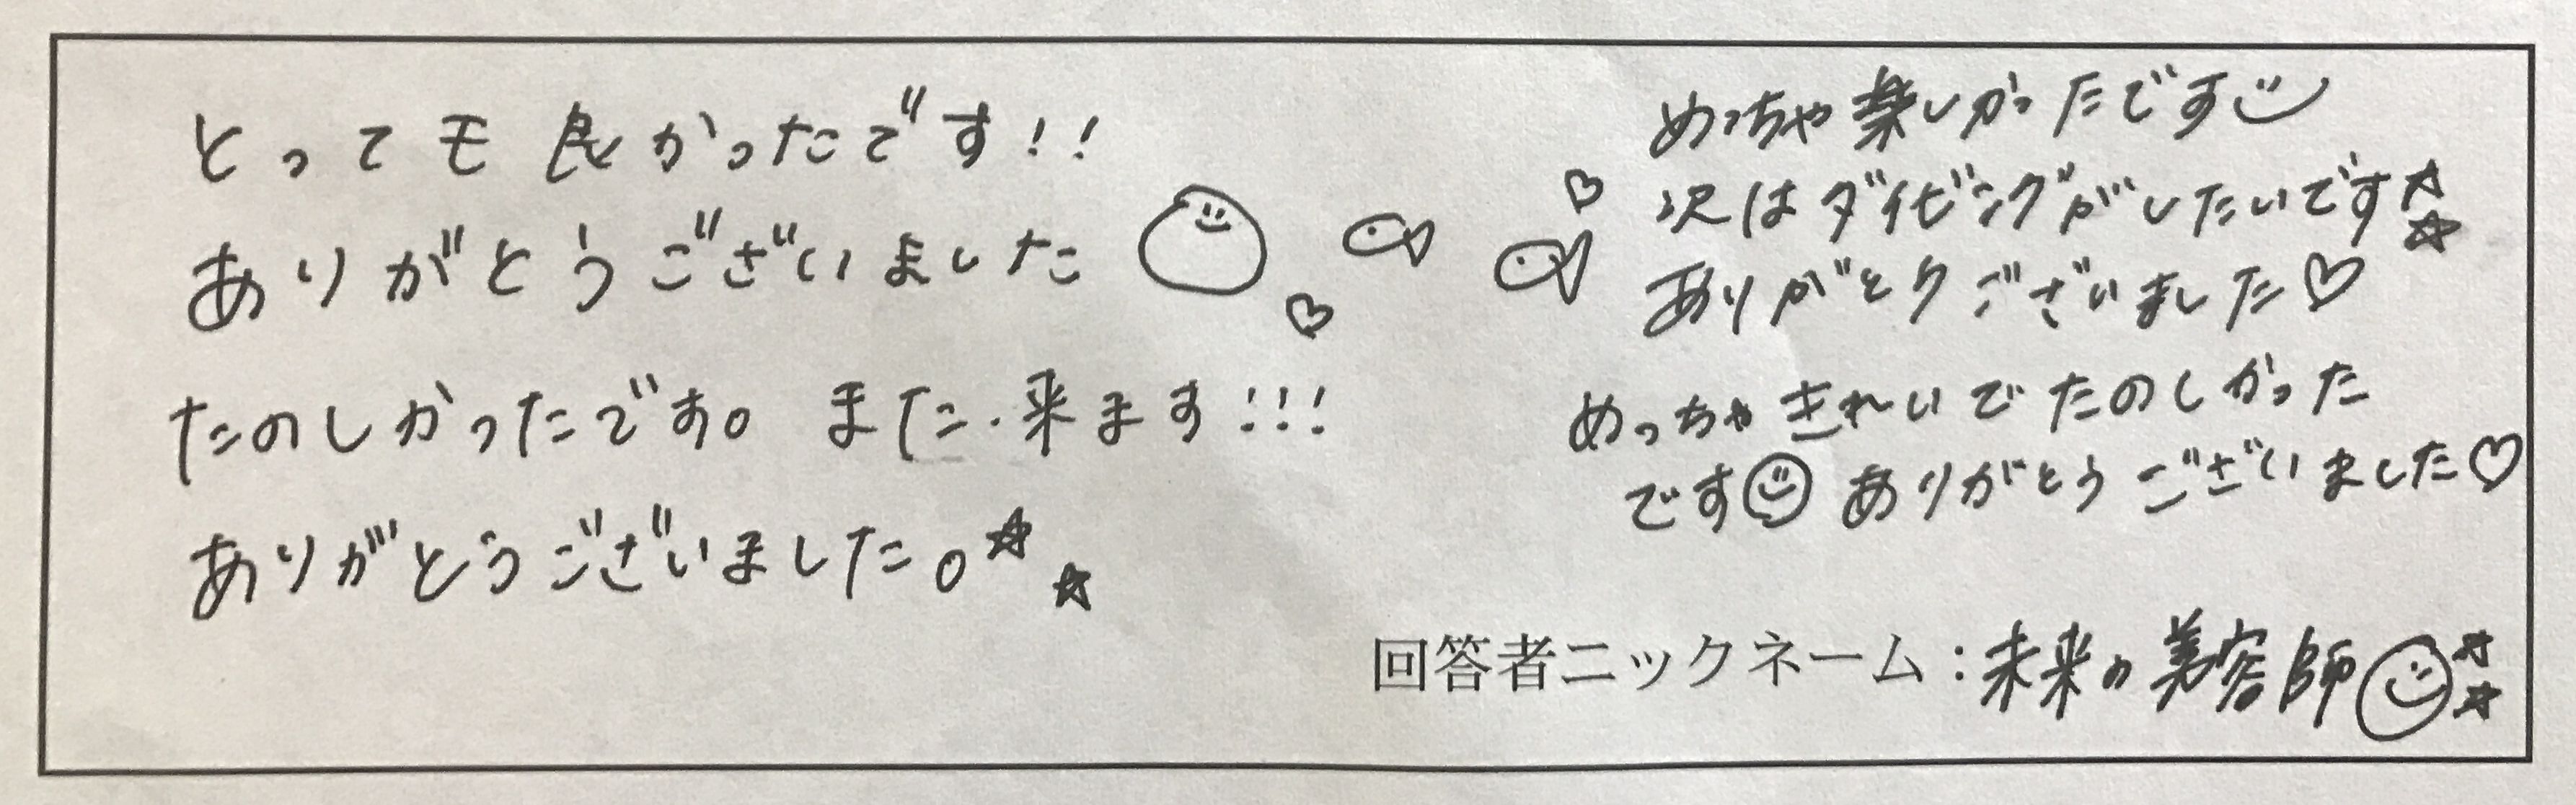 とっても良かったです!!
ありがとうございました
たのしかったです。また来ます!!!
ありがとうございました。☆☆
めっちゃ楽しかったです
次はダイビングがしたいです☆☆
ありがとうございました♡
めっちゃきれいでたのしかった
です☺ありがとうございました♡
回答者ニックネーム:未来の美容師☺☆☆